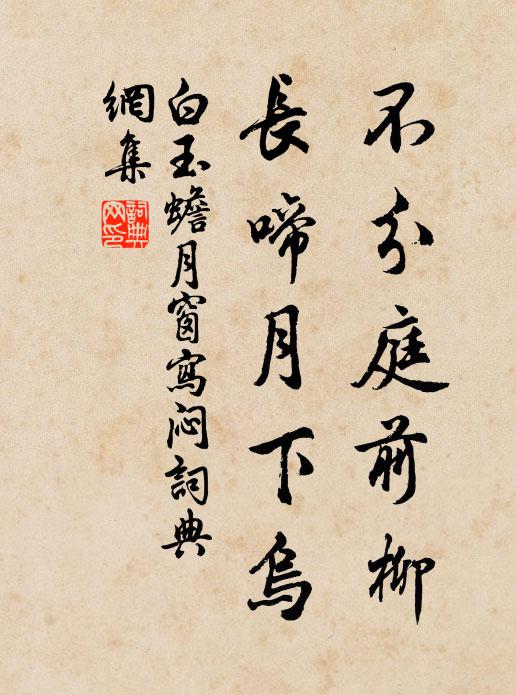 不分庭前柳
長啼月下烏
白玉蟾月窗寫悶詞典
網集
詞典
网印